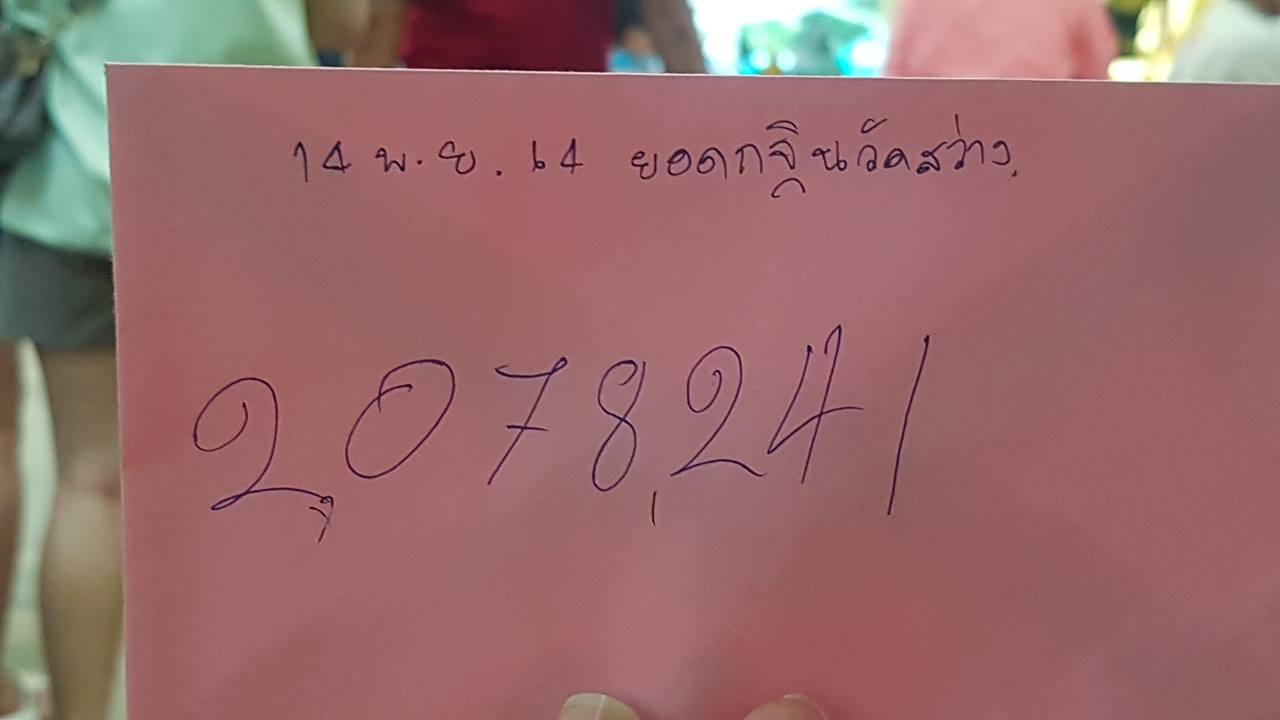 14 พ.ย. 64 ยอดกฐินวัดสว่างฯ
2,078,241